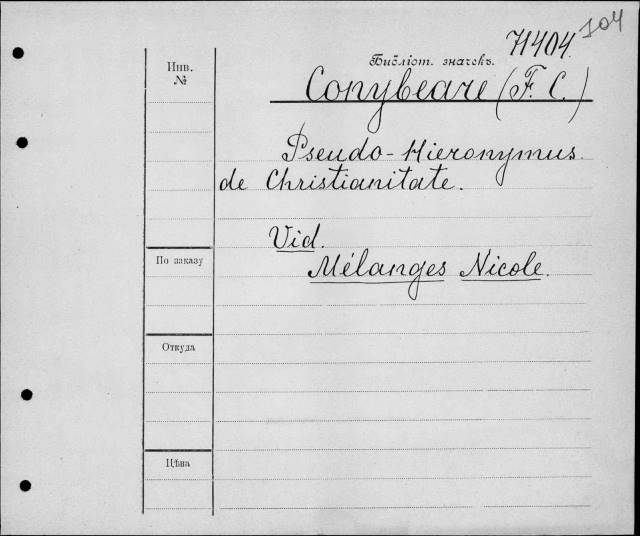 104
71404.
Библіот. значекъ.
Инв.
№
Conybeare (F. C.)
Pseudo-Hieronymus.
de Christianitate.
Vid.
Mélanges Nicole.
По заказу
Откуда
Цѣна